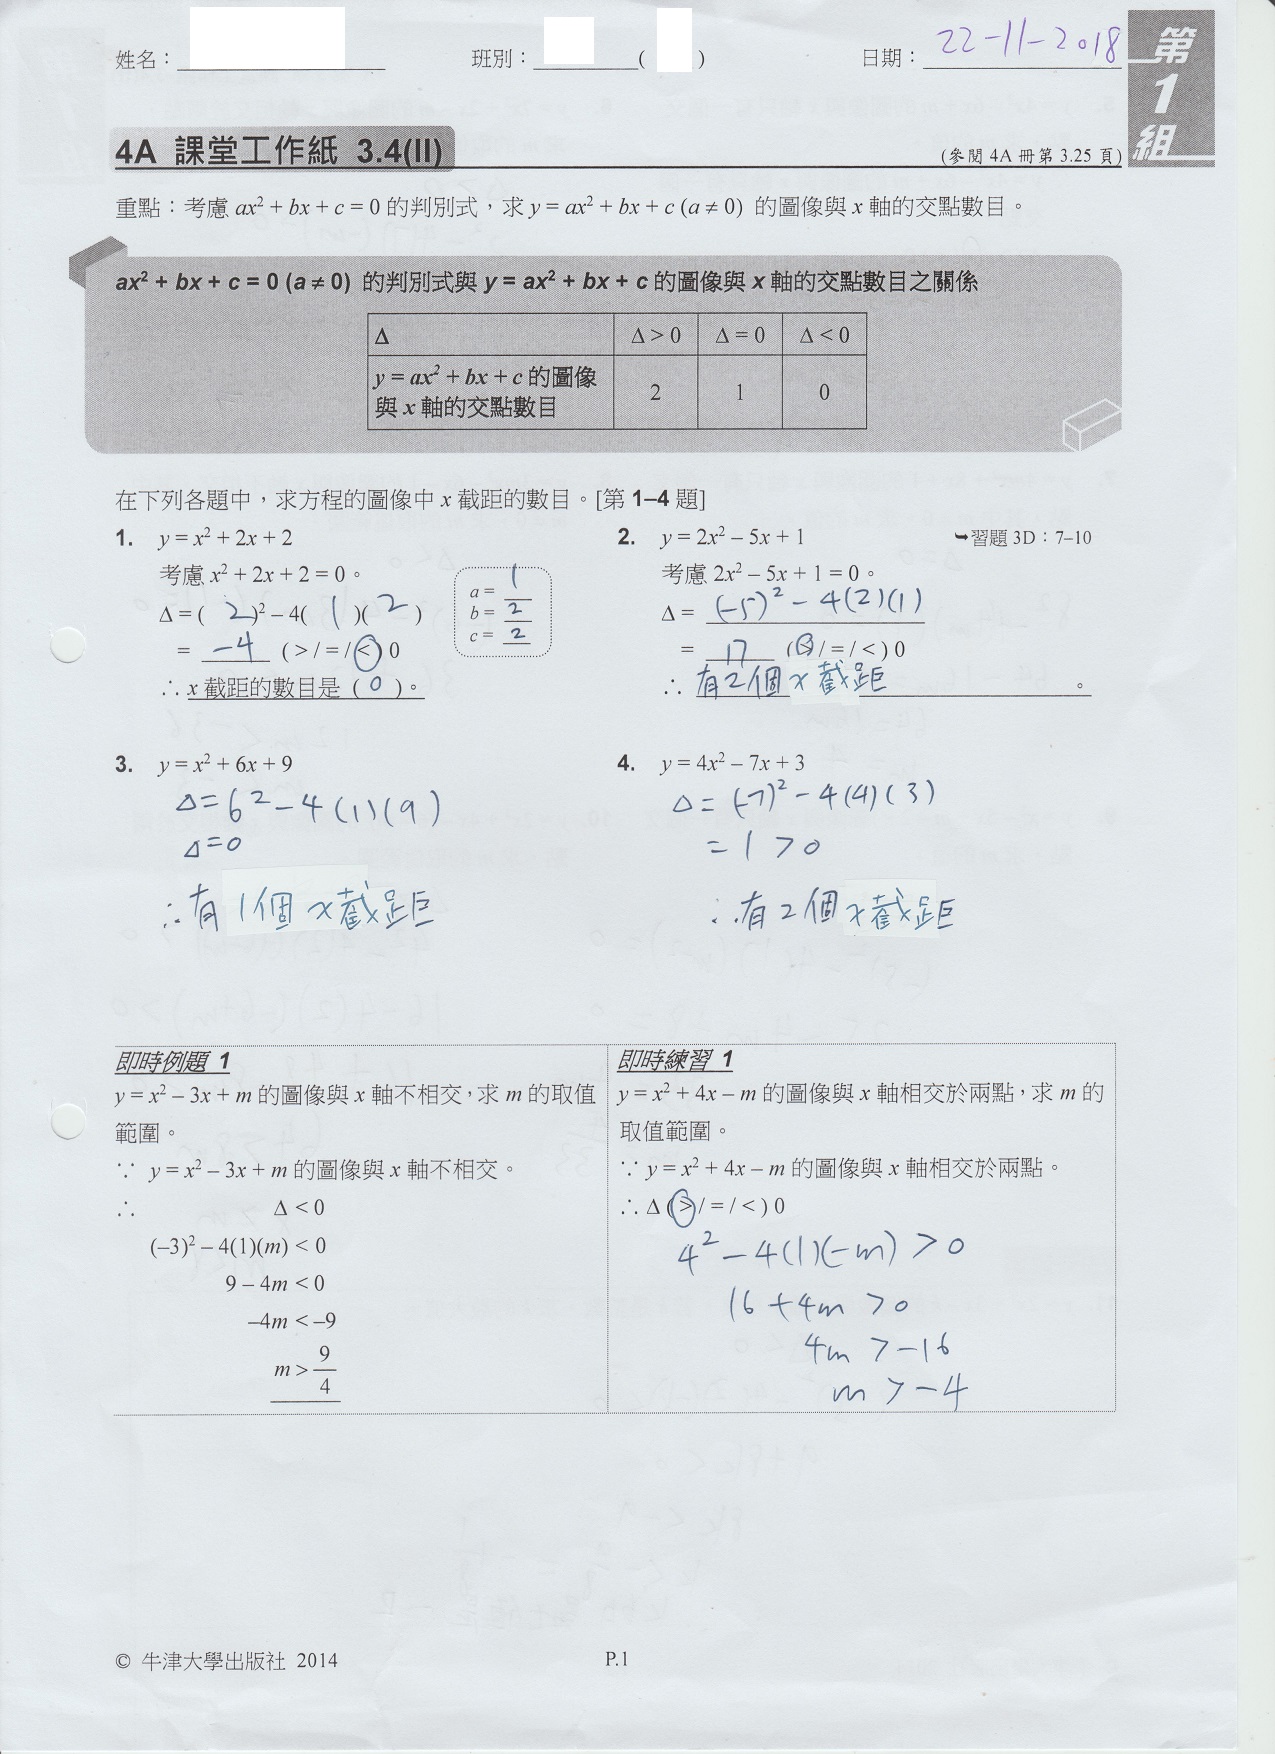 姓名：
班別： ( )
日期： 22-11-2018
第1組
4A 課堂工作紙 3.4(II)
(參閱 4A 冊第 3.25 頁)
重點：考慮 ax² + bx + c = 0 的判別式，求 y = ax² + bx + c (a ≠ 0) 的圖像與 x 軸的交點數目。
ax² + bx + c = 0 (a ≠ 0) 的判別式與 y = ax² + bx + c 的圖像與 x 軸的交點數目之關係
Δ Δ > 0 Δ = 0 Δ < 0
y = ax² + bx + c 的圖像
與 x 軸的交點數目 2 1 0
在下列各題中，求方程的圖像中 x 截距的數目。[第 1–4 題]
1. y = x² + 2x + 2
考慮 x² + 2x + 2 = 0。
Δ = ( 2 )² – 4( 1 )( 2 )
= -4 ( > / = / < ) 0
∴ x 截距的數目是 ( 0 )。
a = 1
b = 2
c = 2
2. y = 2x² – 5x + 1
➥習題 3D：7–10
考慮 2x² – 5x + 1 = 0。
Δ = (-5)² - 4(2)(1)
= 17 ( > / = / < ) 0
∴ 有2個 x 截距 。
3. y = x² + 6x + 9
Δ = 6² - 4(1)(9)
Δ = 0
∴ 有 1 個 x 截距
4. y = 4x² – 7x + 3
Δ = (-7)² - 4(4)(3)
= 1 > 0
∴ 有 2 個 x 截距
即時例題 1
y = x² – 3x + m 的圖像與 x 軸不相交，求 m 的取值
範圍。
∵ y = x² – 3x + m 的圖像與 x 軸不相交。
∴ Δ < 0
(–3)² – 4(1)(m) < 0
9 – 4m < 0
–4m < –9
m > 9/4
即時練習 1
y = x² + 4x – m 的圖像與 x 軸相交於兩點，求 m 的
取值範圍。
∵ y = x² + 4x – m 的圖像與 x 軸相交於兩點。
∴ Δ ( > / = / < ) 0
4² - 4(1)(-m) > 0
16 + 4m > 0
4m > -16
m > -4
© 牛津大學出版社 2014
P.1